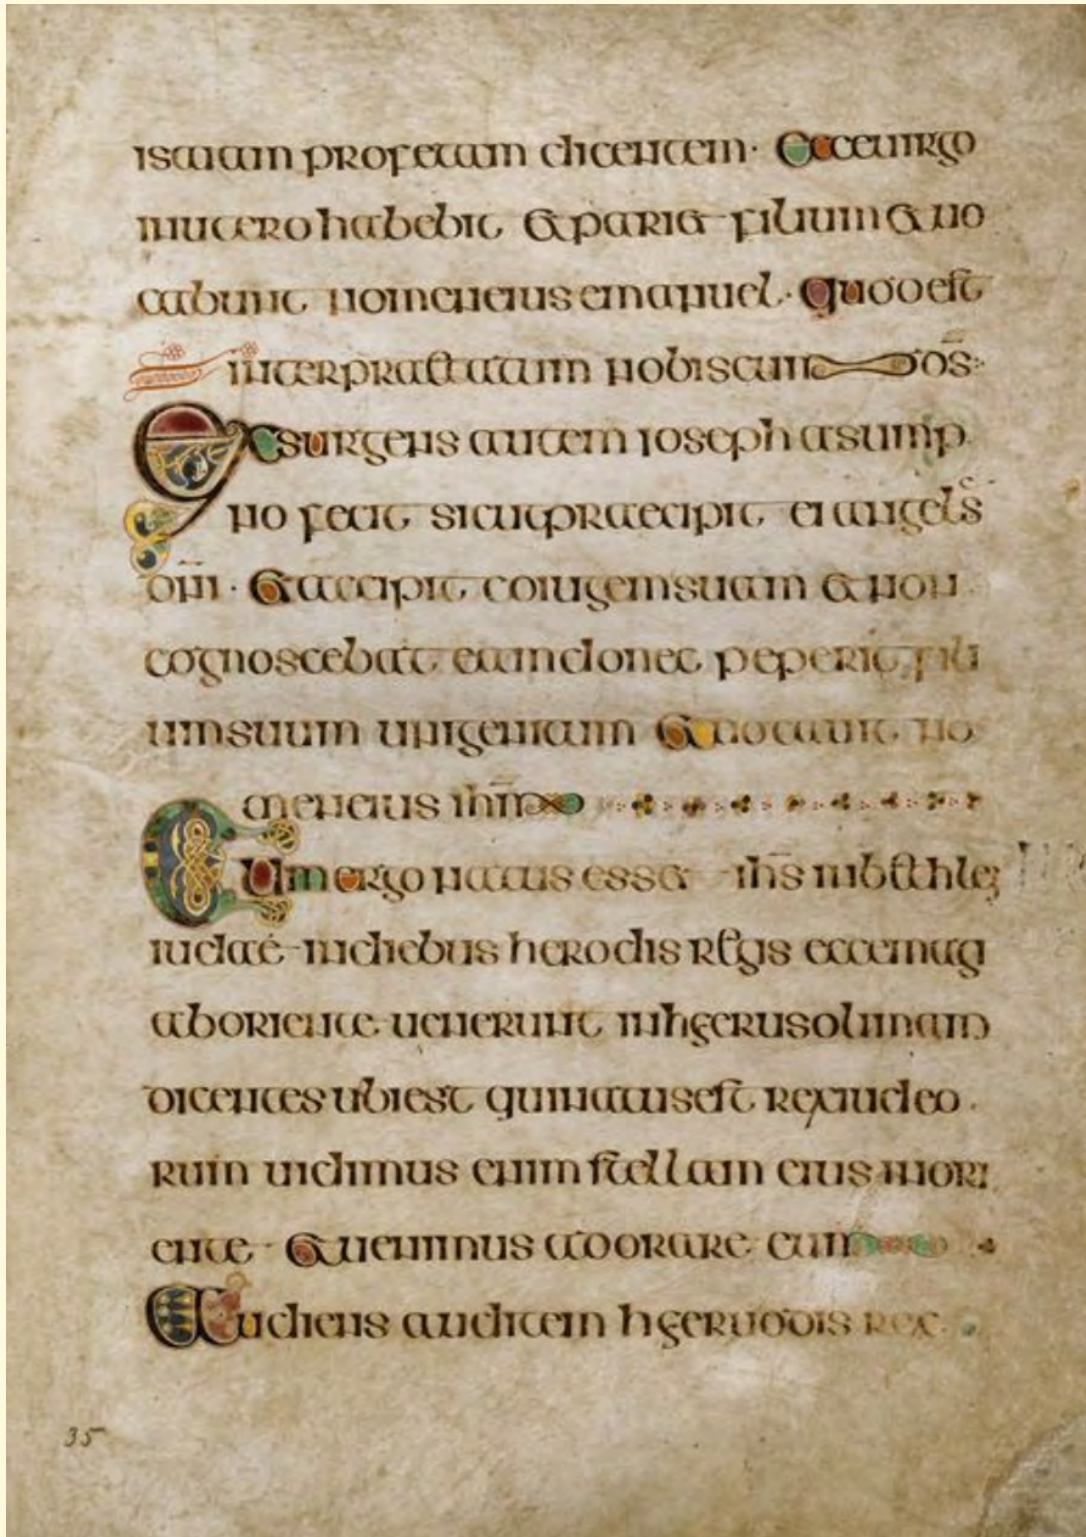 isaiam profetam dicentem· Ecce uirgo
in utero habebit et pariet filium et uo
cabunt nomen eius emanuel· quod est
interpraetatum nobiscum d̅s̅:
Exsurgens autem ioseph a sump
no fecit sicut praecipit ei angel̅s
dn̅i· Et accipit coiugem suam et non
cognoscebat eam donec peperit fili
um suum unigenitum Et uocauit no
men eius ih̅m̅
Cum ergo natus esset ih̅s̅ in bethlem
iudae in diebus herodis regis ecce mag
ab oriente uenerunt in hgerusolimam
dicentes ubi est qui natus est rex iudeo
rum uidimus enim stellam eius in ori
ente· Et uenimus adorare eum
Audiens auditem hgeruodis rex
35